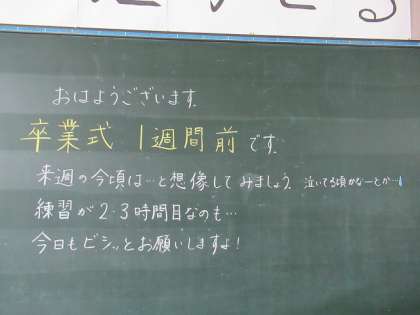 おはようございます。
卒業式 1週間前です。
来週の今頃は…と想像してみましょう。泣いてる頃かなーとか…!
練習が2・3時間目なのも…
今日もビシッとお願いしますよ!